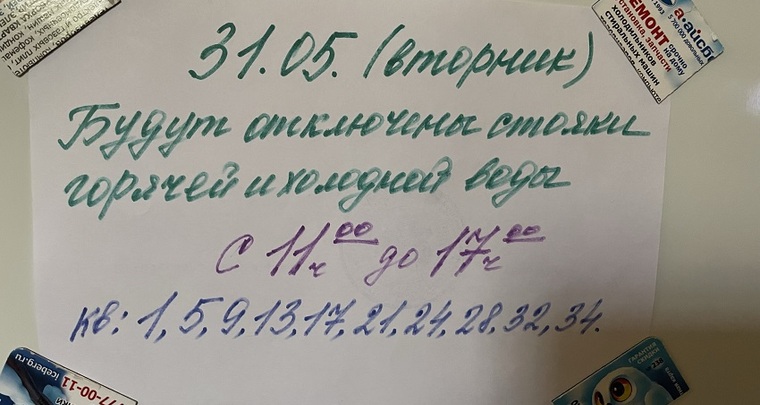 31.05. (вторник)
Будут отключены стояки
горячей и холодной воды
с 11ч 00 до 17ч 00
кв: 1, 5, 9, 13, 17, 21, 24, 28, 32, 34.
РЕМОНТ
холодильников
стиральных машин
срочно
на дому
а-айсбе
77-00-11
iceberg.ru
ГАРАНТИЯ
СКИДКИ